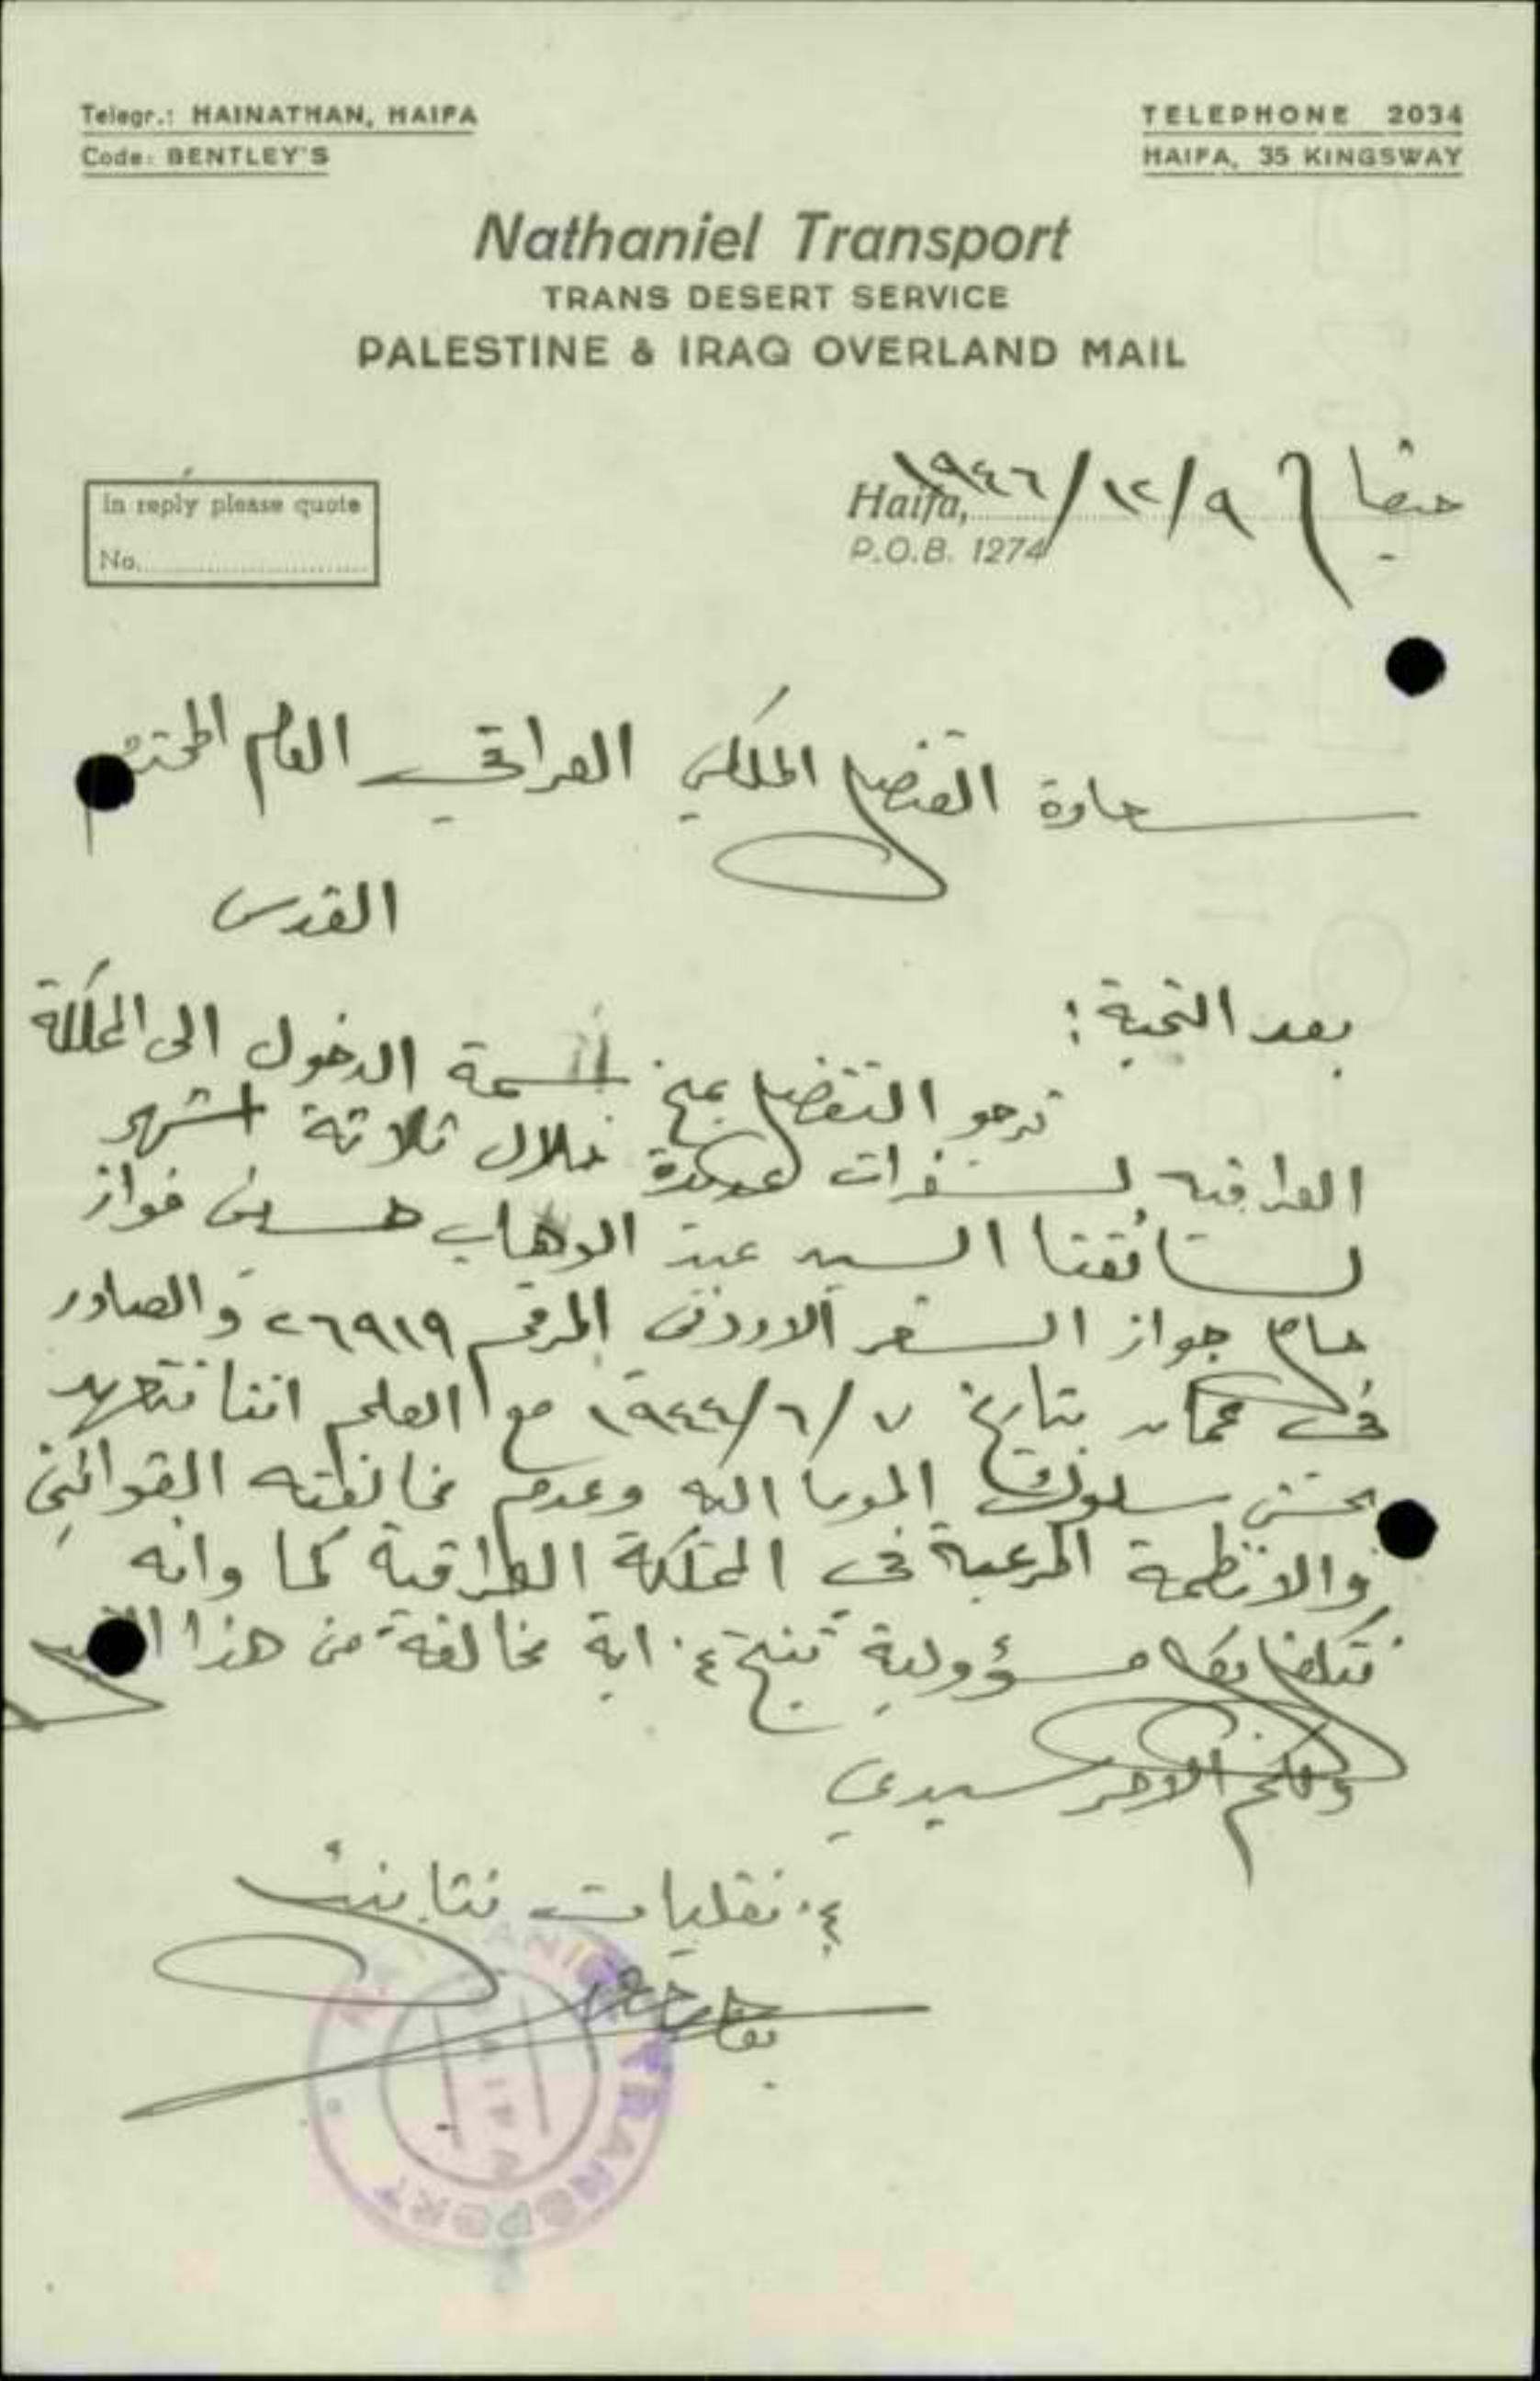 Telegr.: HAINATHAN, HAIFA
Code: BENTLEY'S
TELEPHONE 2034
HAIFA, 35 KINGSWAY
Nathaniel Transport
TRANS DESERT SERVICE
PALESTINE & IRAQ OVERLAND MAIL
In reply please quote
No.
حيفا في ٩/١٢/١٩٤٦
Haifa,
P.O.B. 1274
سعادة القنصل الملكي العراقي العام المحترم
القدس
بعد التحية :
نرجو التفضل بمنح سمة الدخول الى المملكة
العراقية لسفرات عديدة خلال ثلاثة اشهر
لسائقنا السيد عبد الوهاب حسين فواز
حامل جواز السفر الاردني المرقم ٢٦٩١٩ والصادر
في عمان بتاريخ ٧/٦/١٩٤٤ مع العلم اننا نتعهد
بحسن سلوك الموما اليه وعدم مخالفته القوانين
والانظمة المرعية في المملكة العراقية كما وانه
نتكفل بكل مسؤولية تنتج عن اية مخالفة من هذا
ولكم الامر سيدي
عن نقليات نتانيل
NATHANIEL TRANSPORT